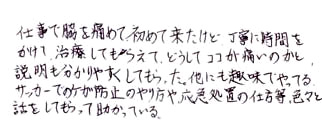 仕事で脇を痛めて初めて来たけど丁寧に時間を
かけて治療してもらえて、どうしてココが痛いのかと
説明も分かりやすくしてもらった。他にも趣味でやってる
サッカーでのケガ防止のやり方や、応急処置の仕方等、色々と
話をしてもらって助かっている。